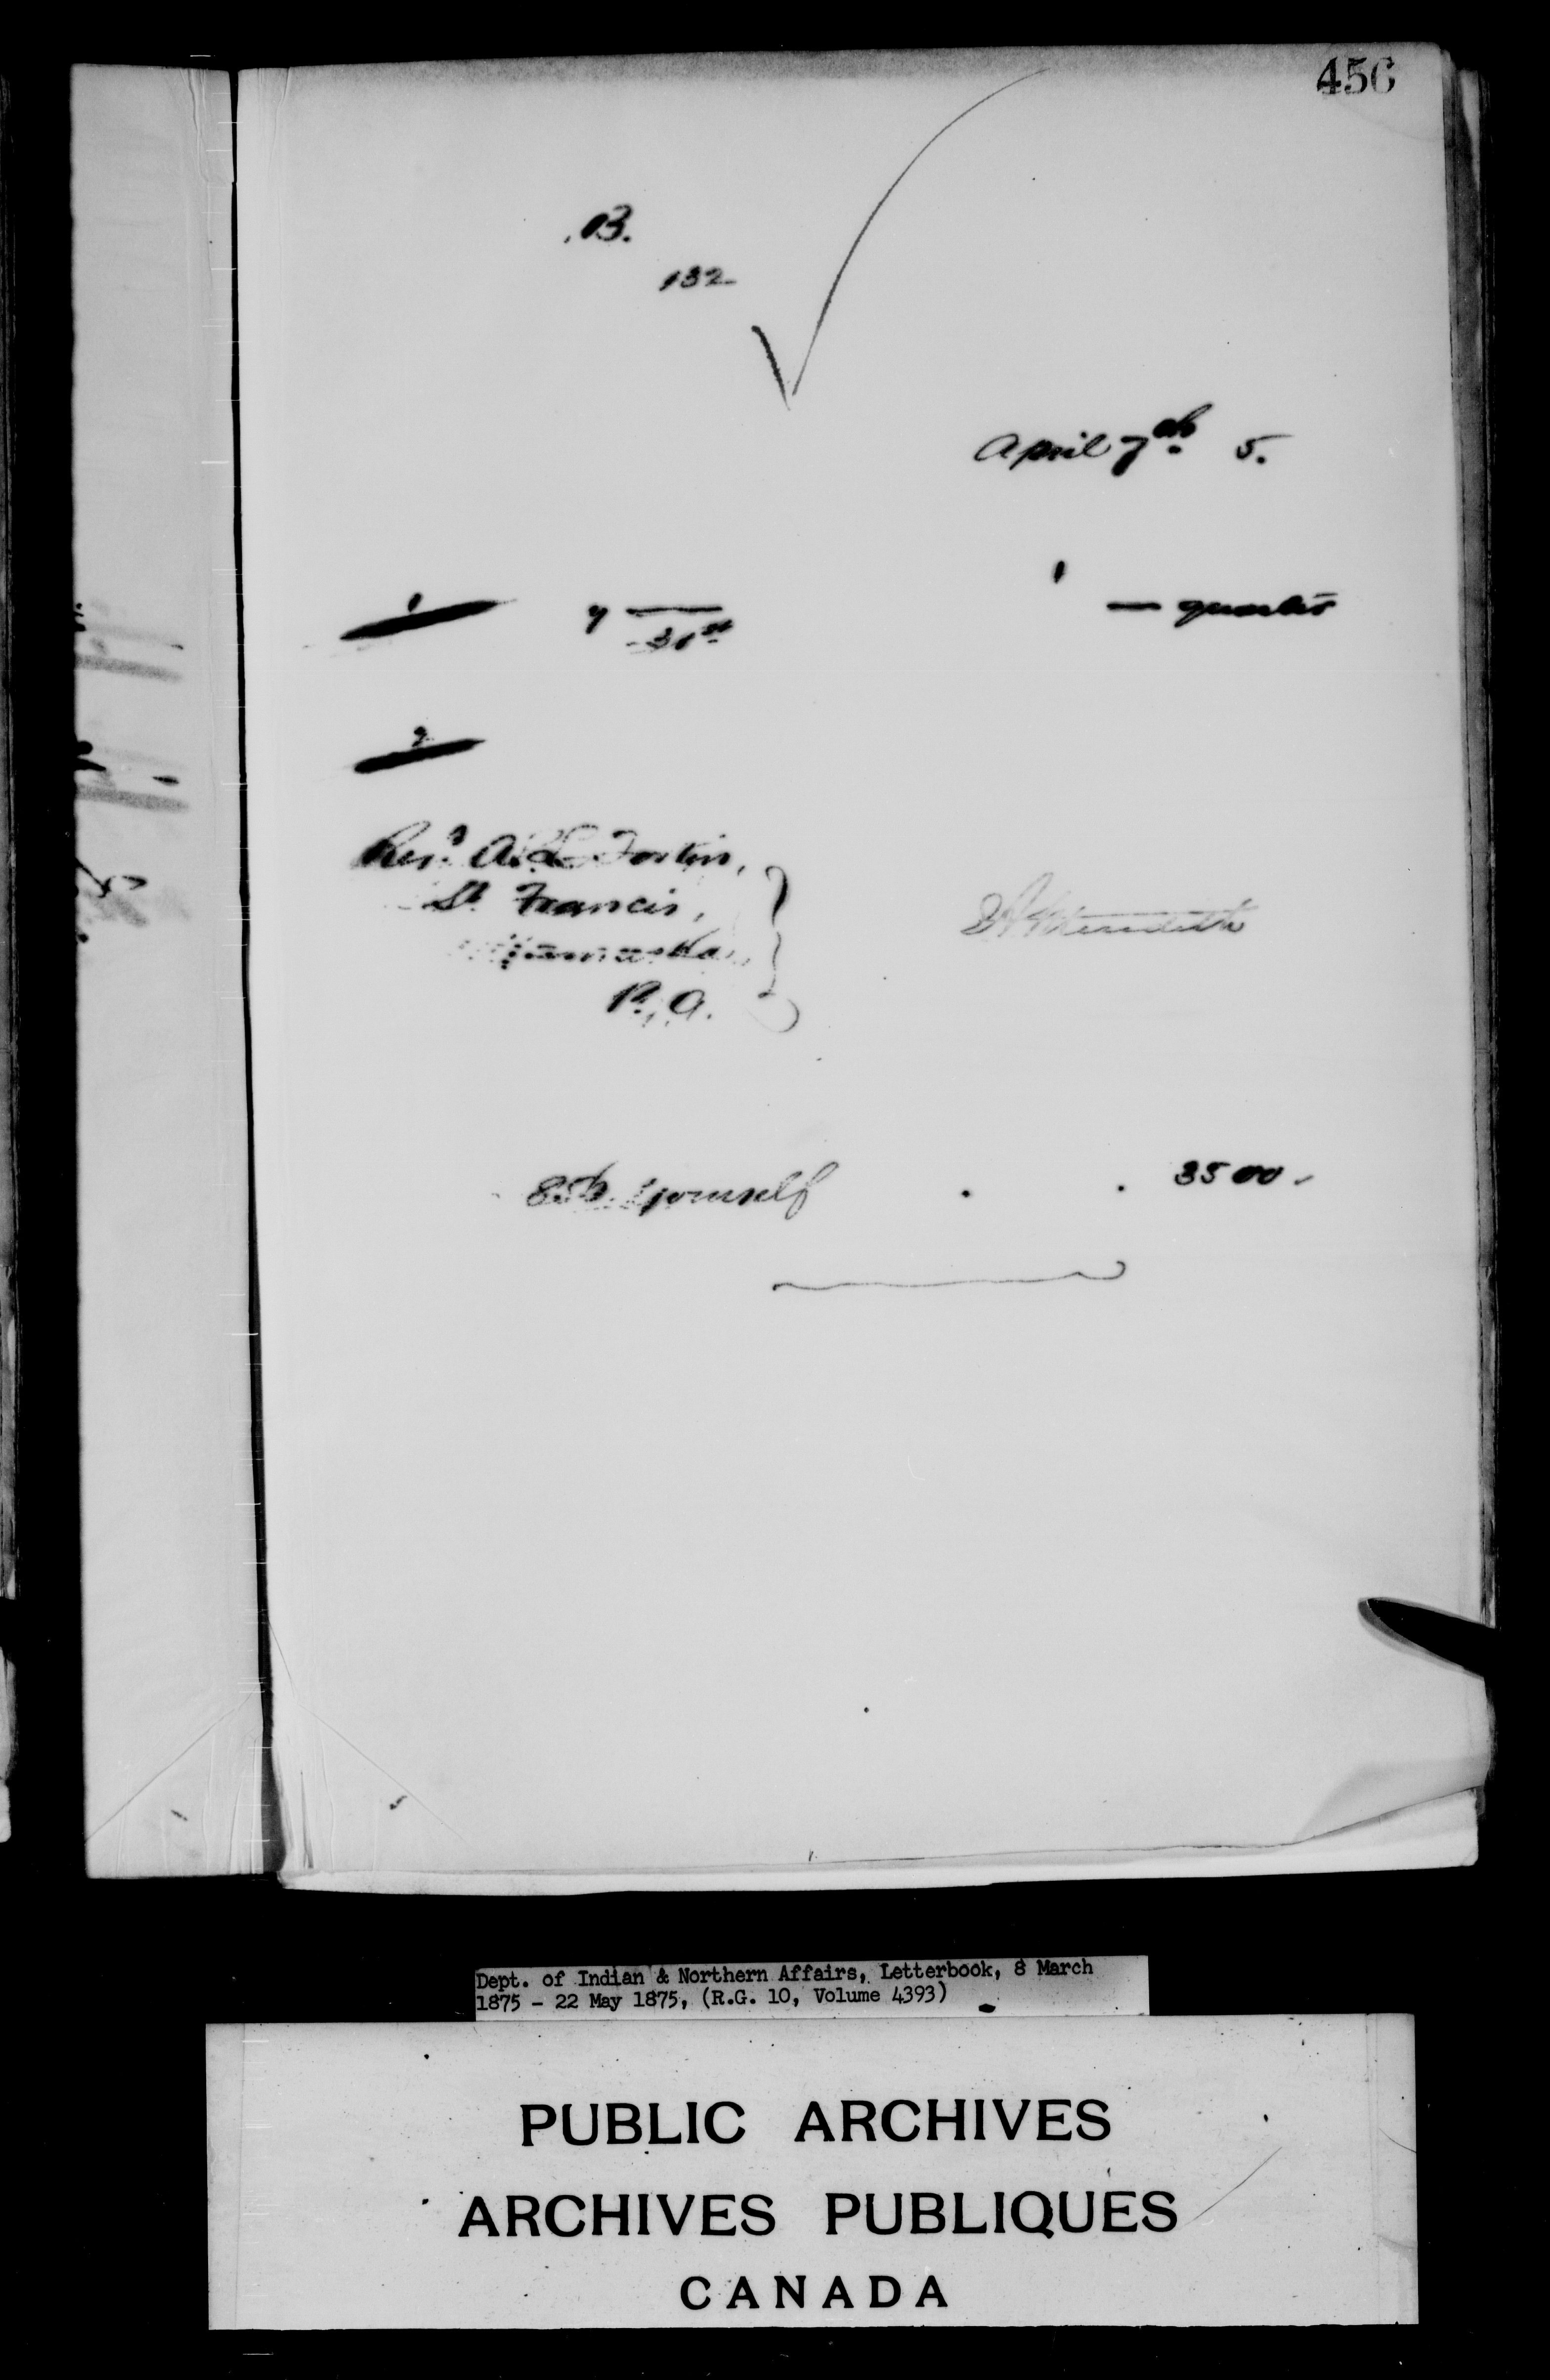 456
B.
132
April 7th 5.
1
1 y — — quarter
31st
2
Revd A. L. Fortin,
St Francis,
Yamaska
P. Q.
E A Meredith
856 Yourself . . 35 00
Dept. of Indian & Northern Affairs, Letterbook, 8 March
1875 - 22 May 1875, (R.G. 10, Volume 4393)
PUBLIC ARCHIVES
ARCHIVES PUBLIQUES
CANADA